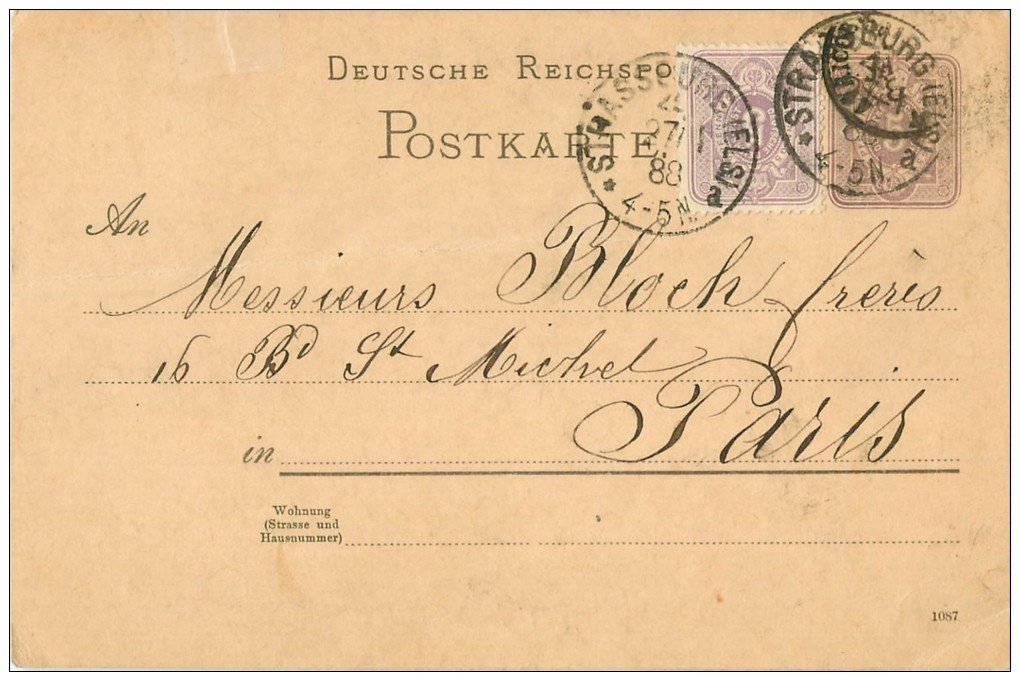 DEUTSCHE REICHSPO
POSTKARTE
STRASSBURG (ELS)
27
88
4-5N.
a
STRASSBURG (ELS)
4-5N.
a
An
Messieurs Bloch frères
16 Bd St Michel
Paris
in
Wohnung
(Strasse und
Hausnummer)
1087